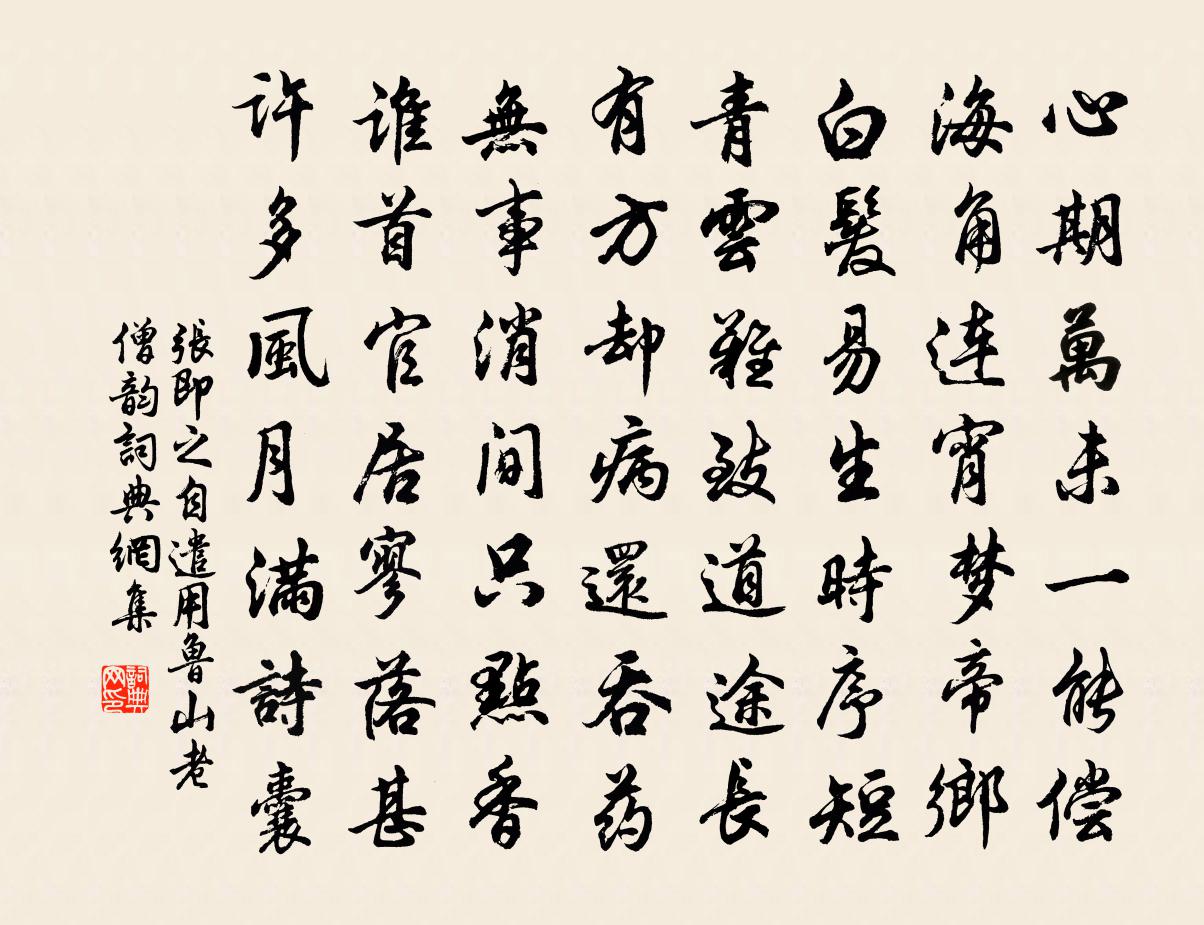 心期萬未一能偿
海角連宵梦帝鄉
白髮易生時序短
青雲難致道途長
有方却病還吞药
無事消间只點香
誰首官居寥落甚
許多風月滿詩囊
張即之自遣用魯山老
僧韵詞典網集
詞典网印